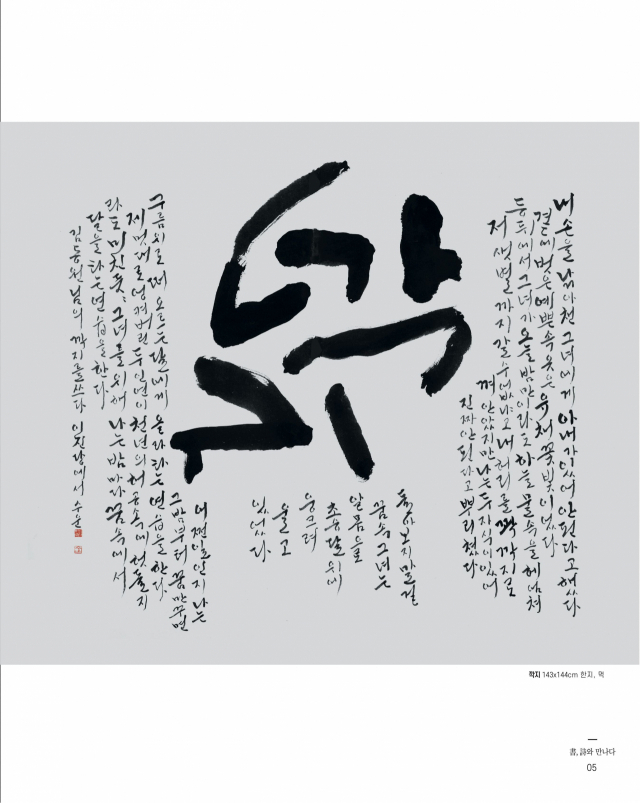 깍지
내 손을 낚아챈 그녀에게 아내가 있어 안된다고 했다
곁에 벗은 예쁜 속옷은 유채꽃빛이었다
등 뒤에서 그녀가 오늘 밤만이라도 하늘물 속을 헤엄쳐
저 샛별까지 갈 수 없냐고 내 허리를 깍지로
껴안았지만 나는 두 자식이 있어
진짜 안된다고 뿌리쳤다
돌아보지 말걸
꿈속 그녀는
알몸으로
초승달 위에
웅크려
울고
있었다
어쩐 일인지 나는
그 밤부터 꿈만 꾸면
구름 위로 떠오르는 달에게 올라타는 연습을 한다
제멋대로 엉켜버린 두 인연이 천년의 허공 속에 헛출지
라도 미친 듯, 그녀를 위해 나는 밤마다 꿈속에서
달을 타는 연습을 한다
김동원님의 깍지를 쓰다
깍지 143x144cm 한지, 먹
書, 詩와 만나다
05